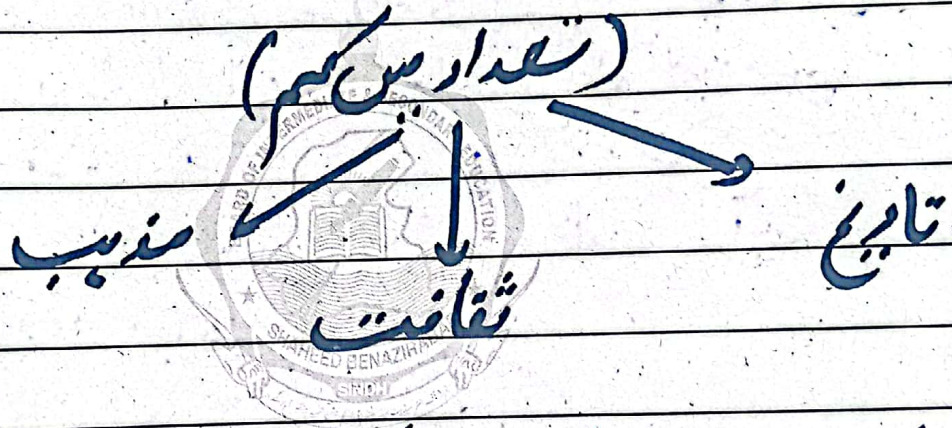 (تعداد میں کم)
تاریخ
مذہب
ثقافت
BOARD OF INTERMEDIATE & SECONDARY EDUCATION
SHAHEED BENAZIRABAD
SINDH